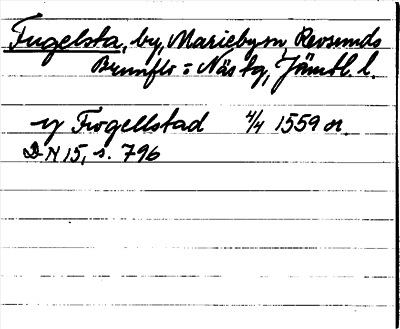 Fugelsta, by, Marieby sn, Revsunds
Brunflo o Näs tg, Jämtl. l.
y Frogellstad 4/4 1559 or.
DN 15, s. 796